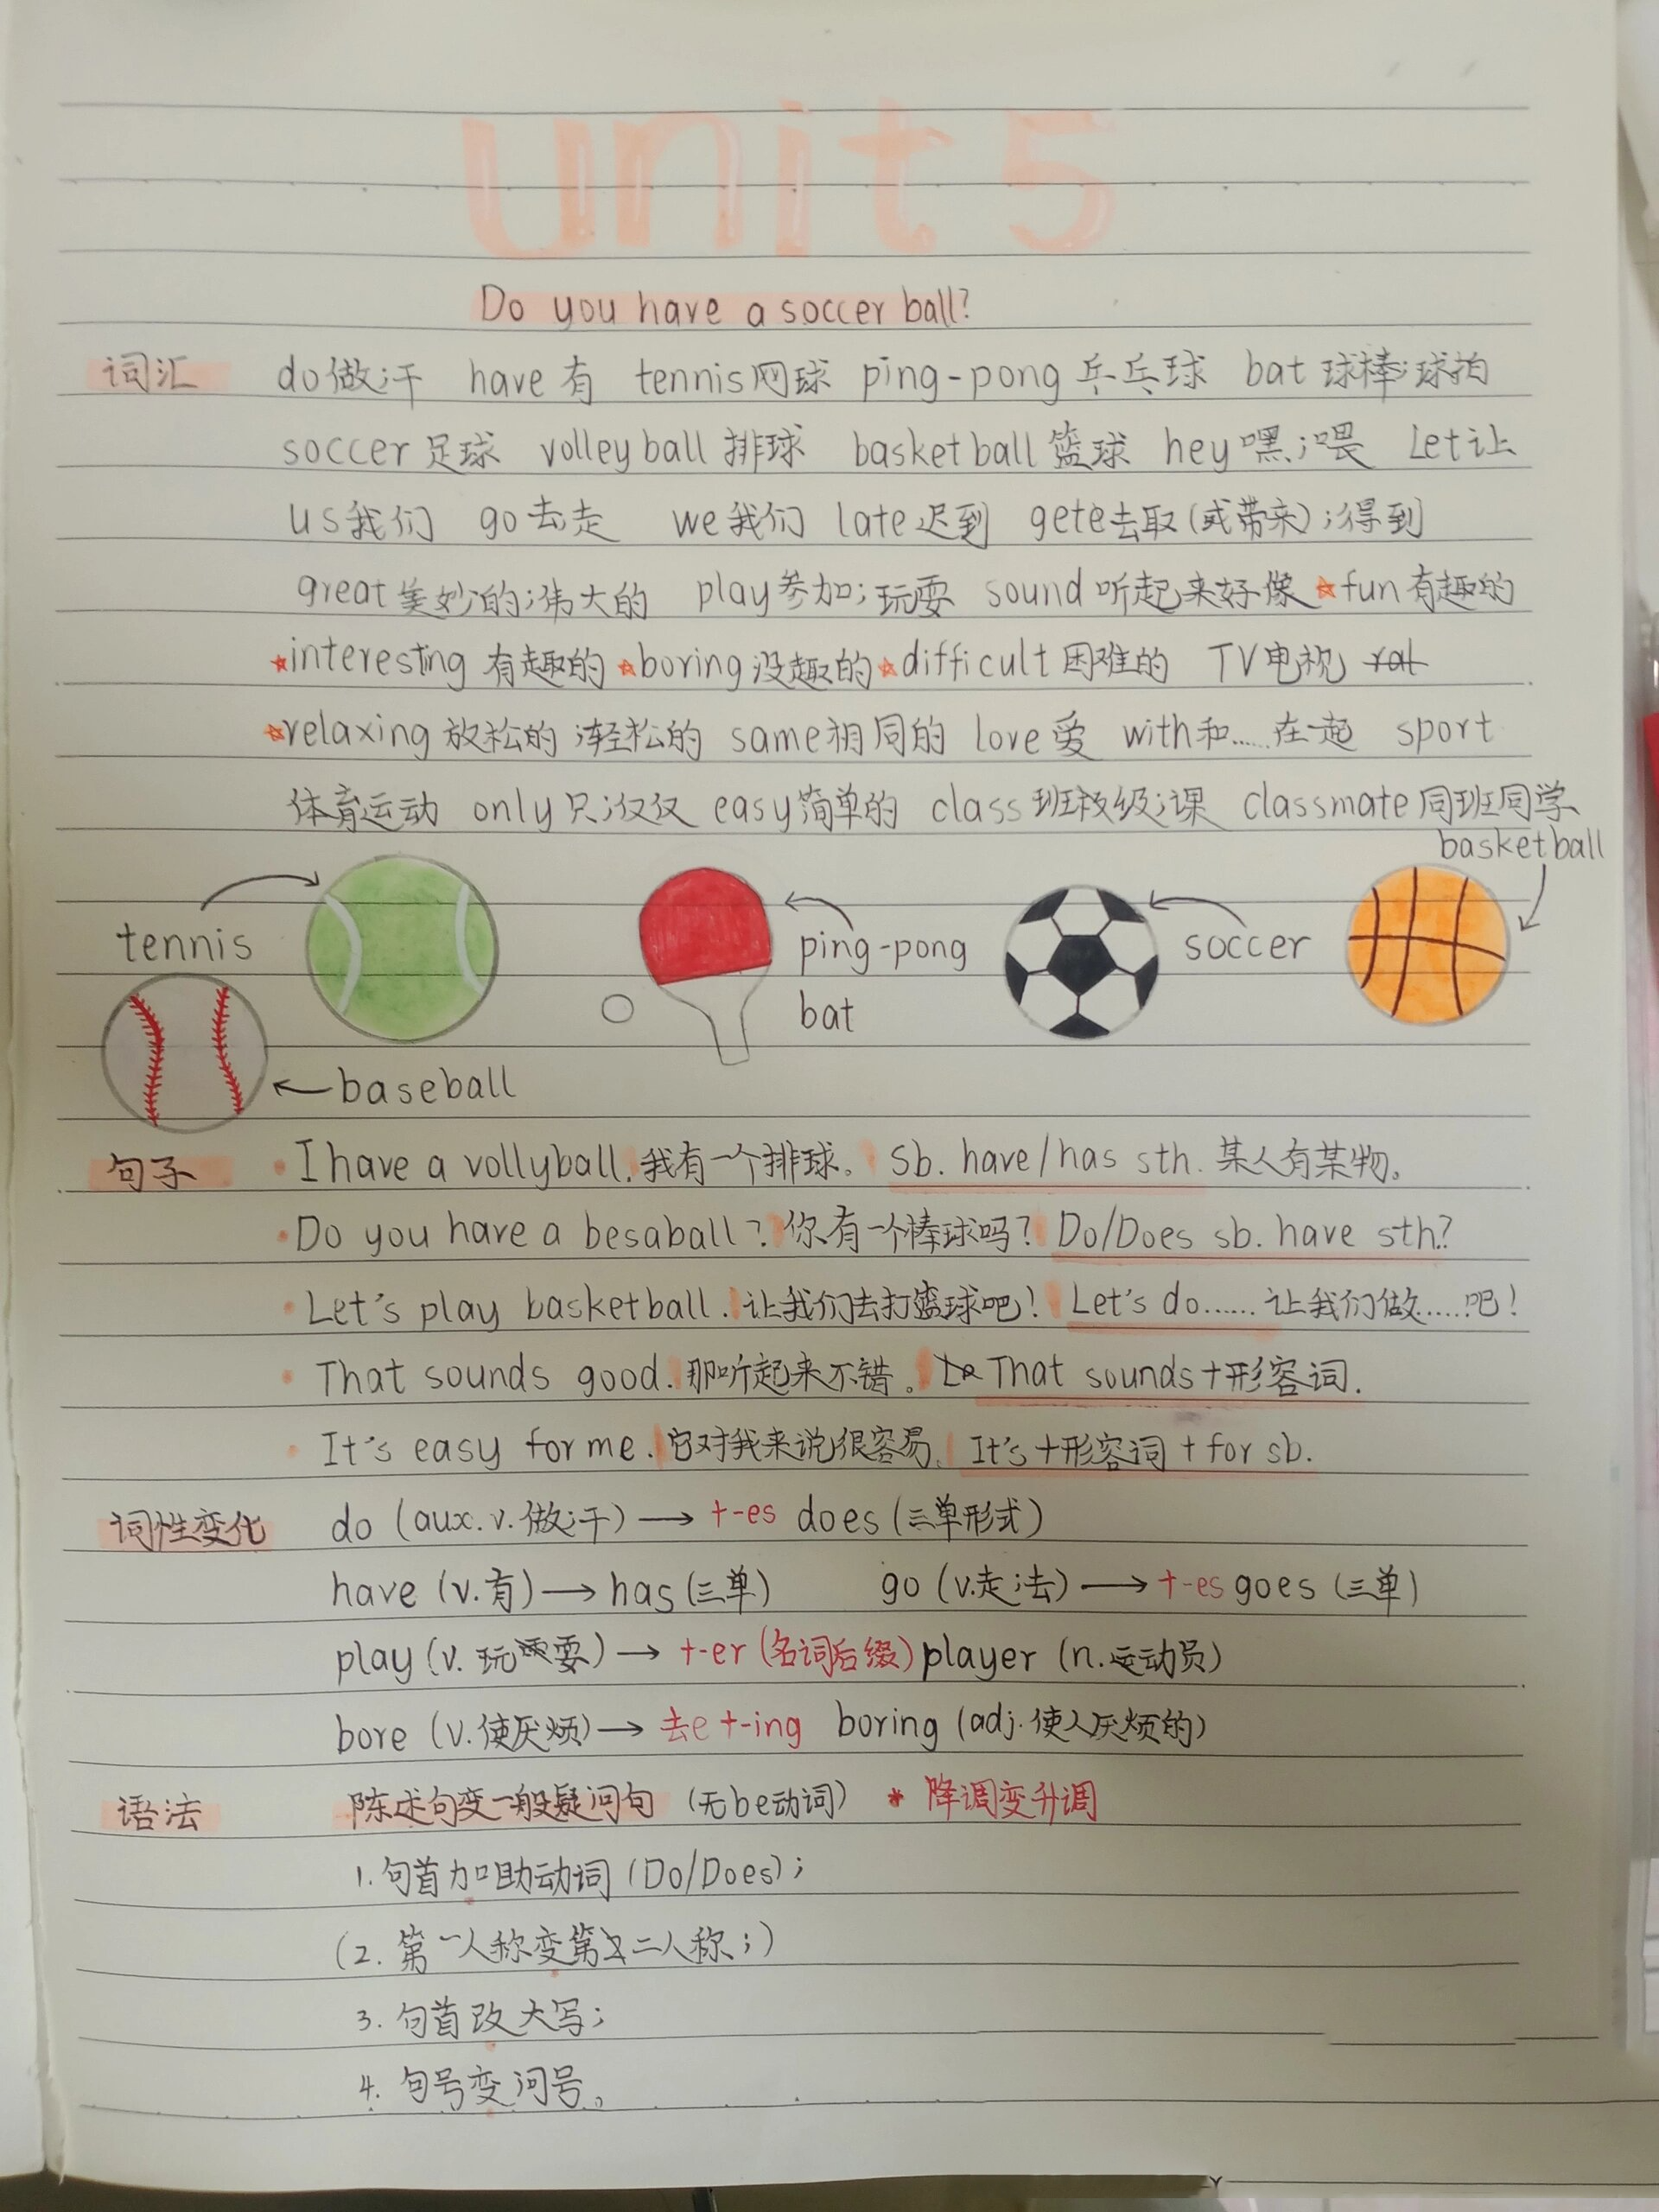 unit 5
Do you have a soccer ball?
词汇 do做;干 have有 tennis网球 ping-pong乒乓球 bat球棒;球拍
soccer足球 volleyball排球 basketball篮球 hey嘿;喂 Let让
us我们 go去;走 we我们 late迟到 gete去取(或带来);得到
great美妙的;伟大的 play参加;玩耍 sound听起来好像 ☆fun有趣的
☆interesting有趣的 ☆boring没趣的 ☆difficult困难的 TV电视
☆relaxing放松的;轻松的 same相同的 love爱 with和……在一起 sport
体育运动 only只;仅仅 easy简单的 class班级;课 classmate同班同学
basketball
tennis ping-pong soccer
bat
baseball
句子 • I have a vollyball. 我有一个排球。 Sb. have/has sth. 某人有某物。
• Do you have a besaball? 你有一个棒球吗? Do/Does sb. have sth?
• Let's play basketball. 让我们去打篮球吧! Let's do…… 让我们做……吧!
• That sounds good. 那听起来不错。 That sounds+形容词.
• It's easy for me. 它对我来说很容易。 It's+形容词+for sb.
词性变化 do (aux.v.做;干) → +-es does (三单形式)
have (v.有) → has (三单) go (v.走;去) → +-es goes (三单)
play (v.玩耍) → +-er (名词后缀) player (n.运动员)
bore (v.使厌烦) → 去e+-ing boring (adj.使人厌烦的)
语法 陈述句变一般疑问句 (无be动词) * 降调变升调
1. 句首加助动词 (Do/Does);
(2. 第一人称变第二人称;)
3. 句首改大写;
4. 句号变问号。